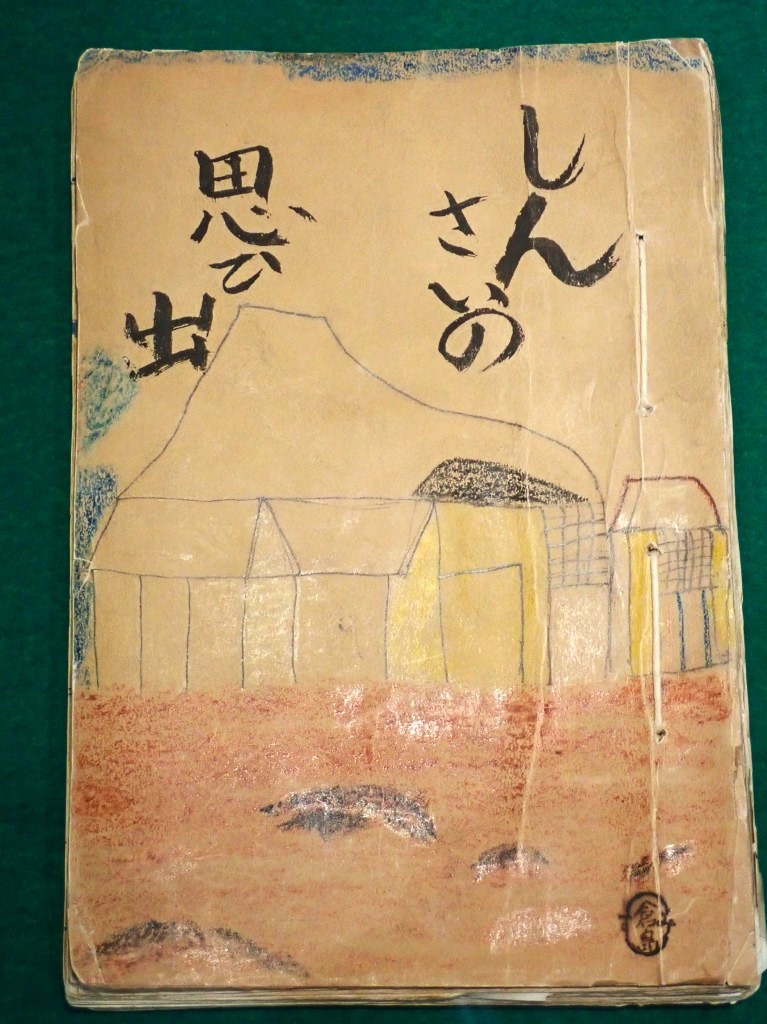 しん
さいの
思ひ
出
倉島